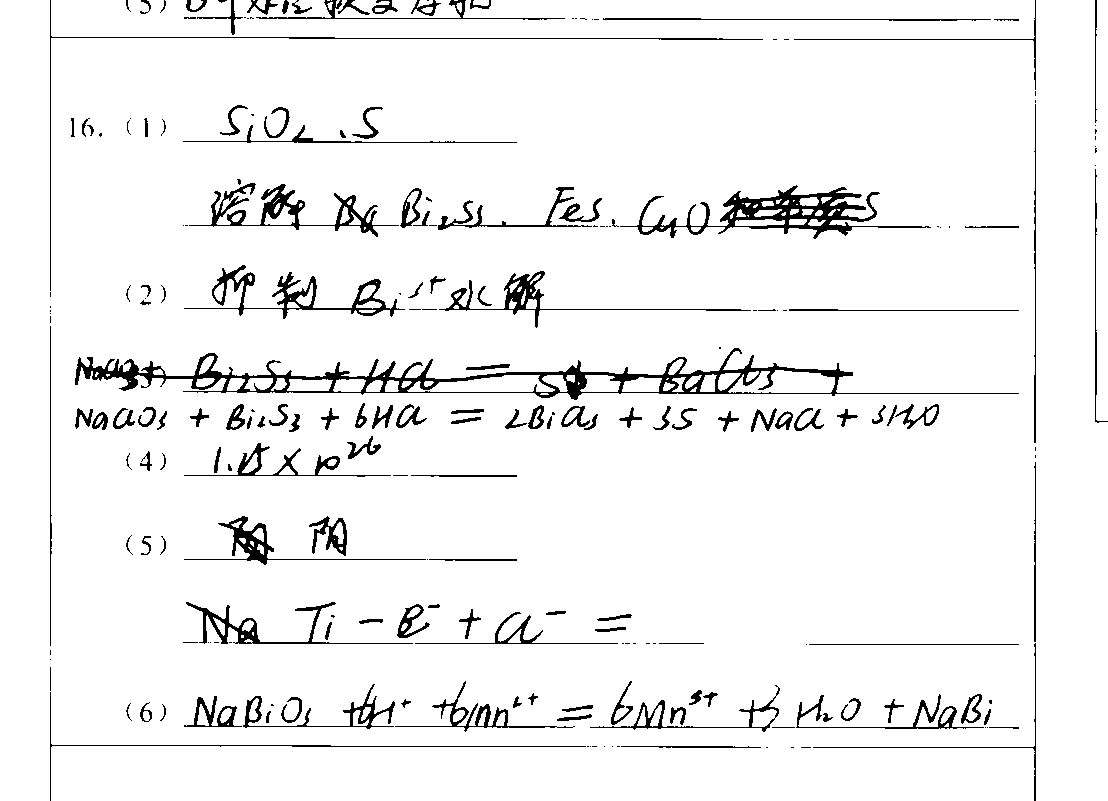 16. (1) SiO₂、S
溶解 Bi₂S₃、FeS、CuO
(2) 抑制 Bi³⁺水解
(3) Bi₂S₃ + HCl = S + BaCl₃ +
NaClO₃ + Bi₂S₃ + 6HCl = 2BiCl₃ + 3S + NaCl + 3H₂O
(4) 1.15×10²⁶
(5) 阴
Na Ti - e⁻ + Cl⁻ =
(6) NaBiO₃ + 6H⁺ + 6Mn²⁺ = 6Mn³⁺ + 3H₂O + NaBi